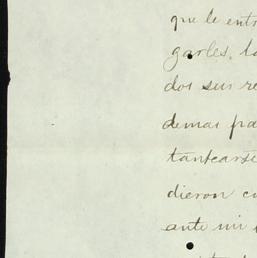 que le entr
garles, la
dos sus re
demas pa
tantearse
dieron cu
ante mi